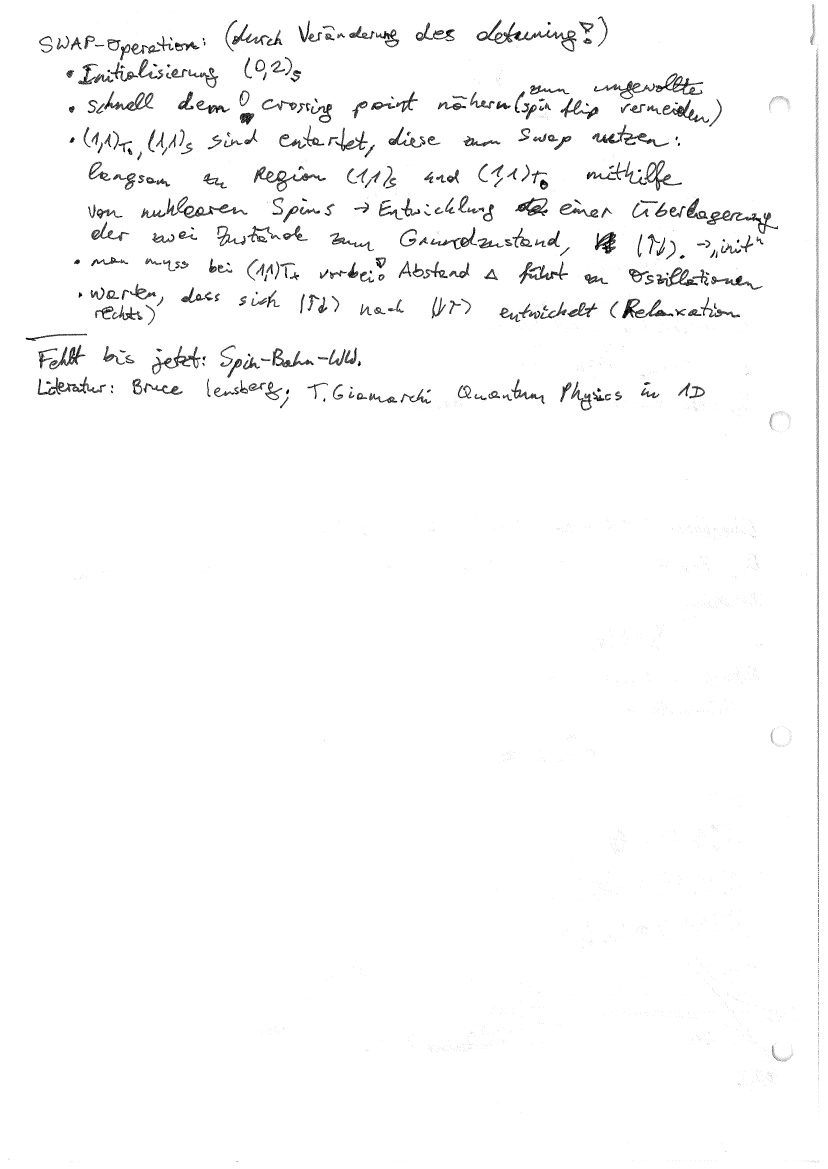 SWAP-Operation: (durch Veränderung des detuning!)
• Initialisierung (0,2)s
zum ungewollte
• schnell dem 0 crossing point nähern (spin flip vermeiden)
• (1,1)T₀, (1,1)s sind entartet, diese zum Swap nutzen:
langsam zu Region (1,1)s und (1,1)T₀ mithilfe
von nuklearen Spins → Entwicklung einer Überlagerung
der zwei Zustände zum Grundzustand, |↑↓⟩. → „init"
• man muss bei (1,1)T₊ vorbei! Abstand Δ führt zu Oszillationen
• warten, dass sich |↑↓⟩ nach |↓↑⟩ entwickelt (Relaxation
rechts)
Fehlt bis jetzt: Spin-Bahn-WW.
Literatur: Bruce lensberg; T. Giamarchi Quantum Physics in 1D